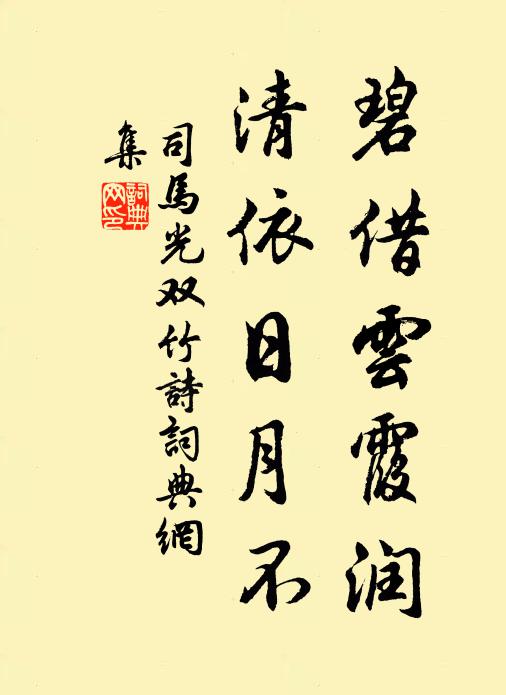 碧借雲霞润
清依日月不
司馬光双竹詩詞典網
集
詞典网印